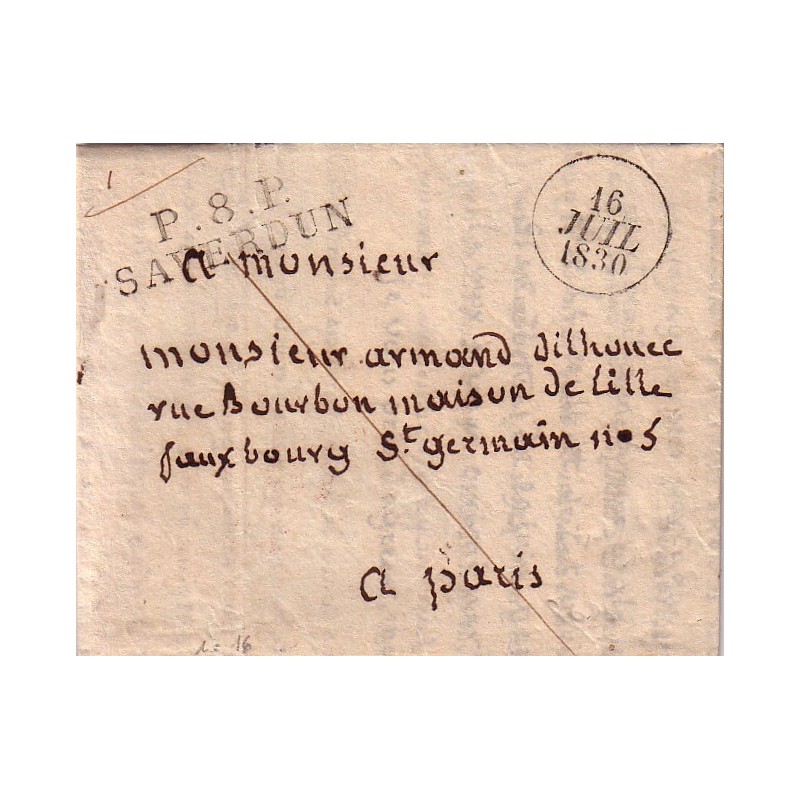 1
P.8.P.
SAVERDUN
16
JUIL
1830
A monsieur
monsieur armand dilhouee
rue Bourbon maison de lille
fauxbourg St germain no 5
A paris
16